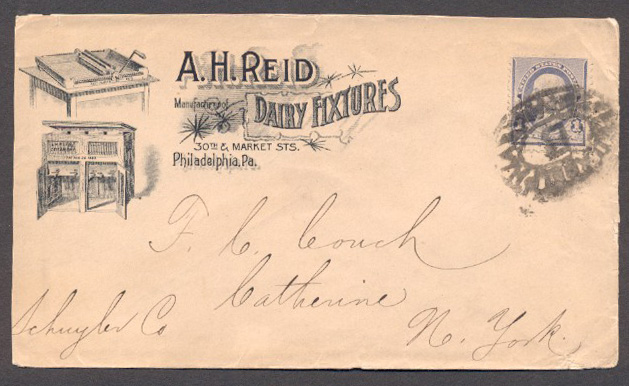 A. H. REID
Manufacturer of
DAIRY FIXTURES
30TH & MARKET STS.
Philadelphia, Pa.
F. C. Couch
Catherine
Schuyler Co
N. York.